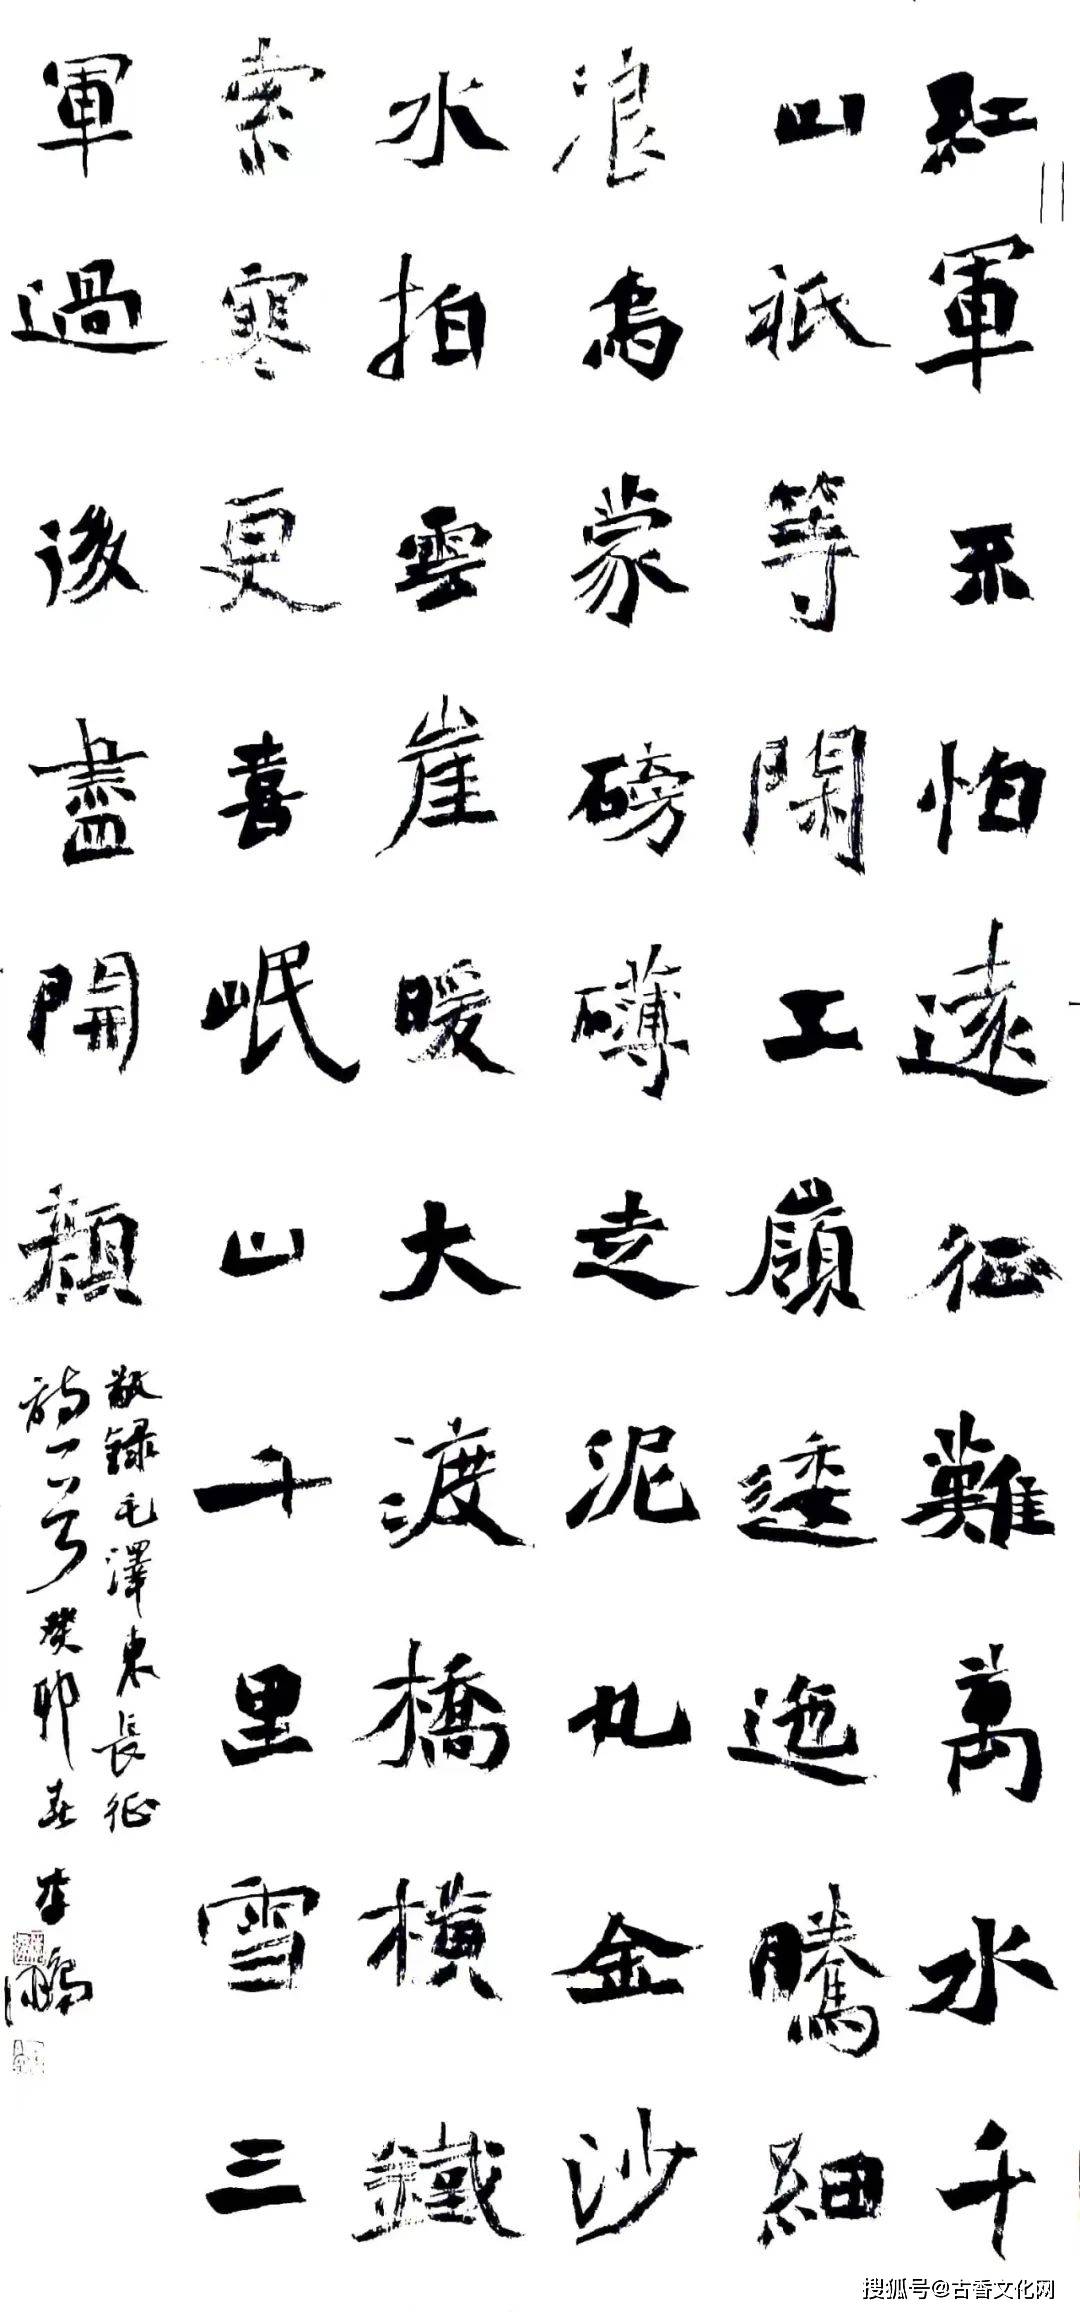 紅軍不怕遠征難萬水千
山祇等閑五嶺逶迤騰細
浪烏蒙磅礴走泥丸金沙
水拍雲崖暖大渡橋橫鐵
索寒更喜岷山千里雪三
軍過後盡開顏
敬錄毛澤東長征
詩一首癸卯春李
搜狐号@古香文化网